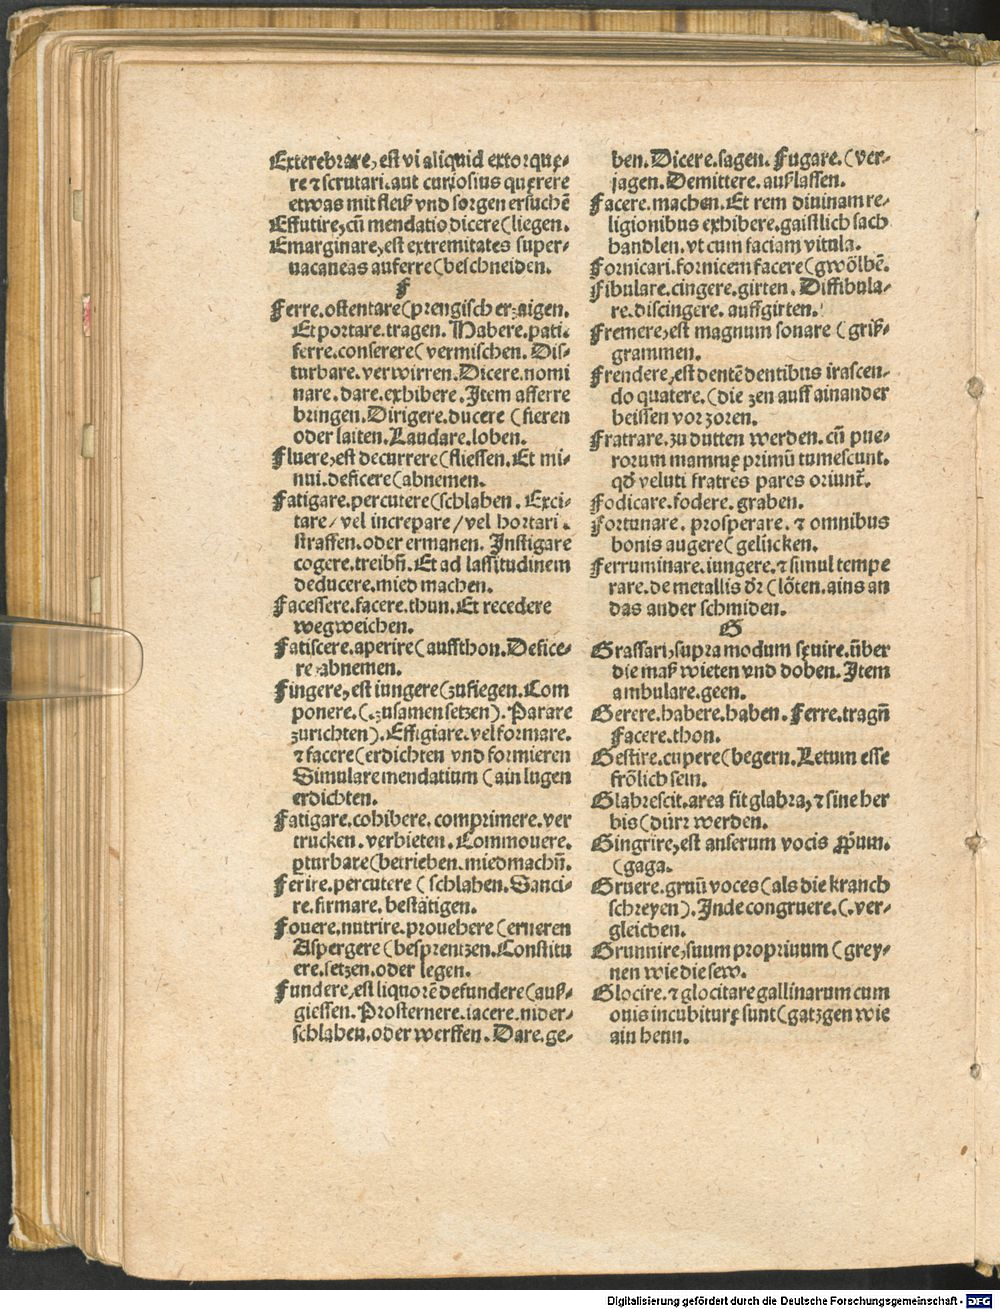 Exterebrare, est vi aliquid extorquę-
re ⁊ scrutari. aut curiosius quęrere
etwas mit fleiß vnd sorgen ersuchē
Effutire, cū mendatio dicere (liegen.
Emarginare, est extremitates super-
uacaneas auferre (beschneiden.
F
Ferre. ostentare (prengisch erzaigen.
Et portare. tragen. Habere. pati.
ferre. conserere (vermischen. Dis-
turbare. verwirren. Dicere. nomi
nare. dare. exhibere. Item afferre
bringen. Dirigere. ducere (fieren
oder laiten. Laudare. loben.
Fluere, est decurrere (fliessen. Et mi-
nui. deficere (abnemen.
Fatigare. percutere (schlahen. Exci-
tare / vel increpare / vel hortari.
straffen. oder ermanen. Instigare
cogere. treibn̄. Et ad lassitudinem
deducere. mied machen.
Facessere. facere. thun. Et recedere
wegweichen.
Fatiscere. aperire (auffthon. Defice-
re. abnemen.
Fingere, est iungere (zufiegen. Com
ponere. (.zusamensetzen). Parare
zurichten). Effigiare. vel formare.
⁊ facere (erdichten vnd formieren
Simulare mendatium (ain lugen
erdichten.
Fatigare. cohibere. comprimere. ver
trucken. verbieten. Commouere.
ꝑturbare (betrieben. miedmachn̄.
Ferire. percutere (schlahen. Sanci-
re. firmare. bestätigen.
Fouere. nutrire. prouehere (erneren
Aspergere (besprentzen. Constitu
ere. setzen. oder legen.
Fundere, est liquorē defundere (auß-
giessen. Prosternere. iacere. nider-
schlahen. oder werffen. Dare. ge-
ben. Dicere. sagen. Fugare. (ver-
jagen. Demittere. außlassen.
Facere. machen. Et rem diuinam re-
ligionibus exhibere. gaistlich sach
handlen. vt cum faciam vitula.
Fornicari. fornicem facere (gwölbē.
Fibulare. cingere. girten. Diffibula-
re. discingere. auffgirten.
Fremere, est magnum sonare (griß-
grammen.
Frendere, est dentē dentibus irascen-
do quatere. (die zen auff ainander
beissen vor zoren.
Fratrare. zu dutten werden. cū pue-
rorum mammę primū tumescunt.
qđ veluti fratres pares oriunt᷑.
Fodicare. fodere. graben.
Fortunare. prosperare. ⁊ omnibus
bonis augere (gelücken.
Ferruminare. iungere. ⁊ simul tempe
rare. de metallis dr̄ (löten. ains an
das ander schmiden.
G
Grassari, supra modum sęuire. über
die maß wieten vnd doben. Item
ambulare. geen.
Gerere. habere. haben. Ferre. tragn̄
Facere. thon.
Gestire. cupere (begern. Letum esse
frölich sein.
Glabrescit. area fit glabra, ⁊ sine her
bis (dürr werden.
Gingrire, est anserum vocis ꝓprium.
(gaga.
Gruere. gruū voces (als die kranch
schreyen). Inde congruere. (.ver-
gleichen.
Grunnire, suum propriuum (grey-
nen wie die sew.
Glocire. ⁊ glocitare gallinarum cum
ouis incubiturę sunt (gatzgen wie
ain henn.
Digitalisierung gefördert durch die Deutsche Forschungsgemeinschaft - DFG